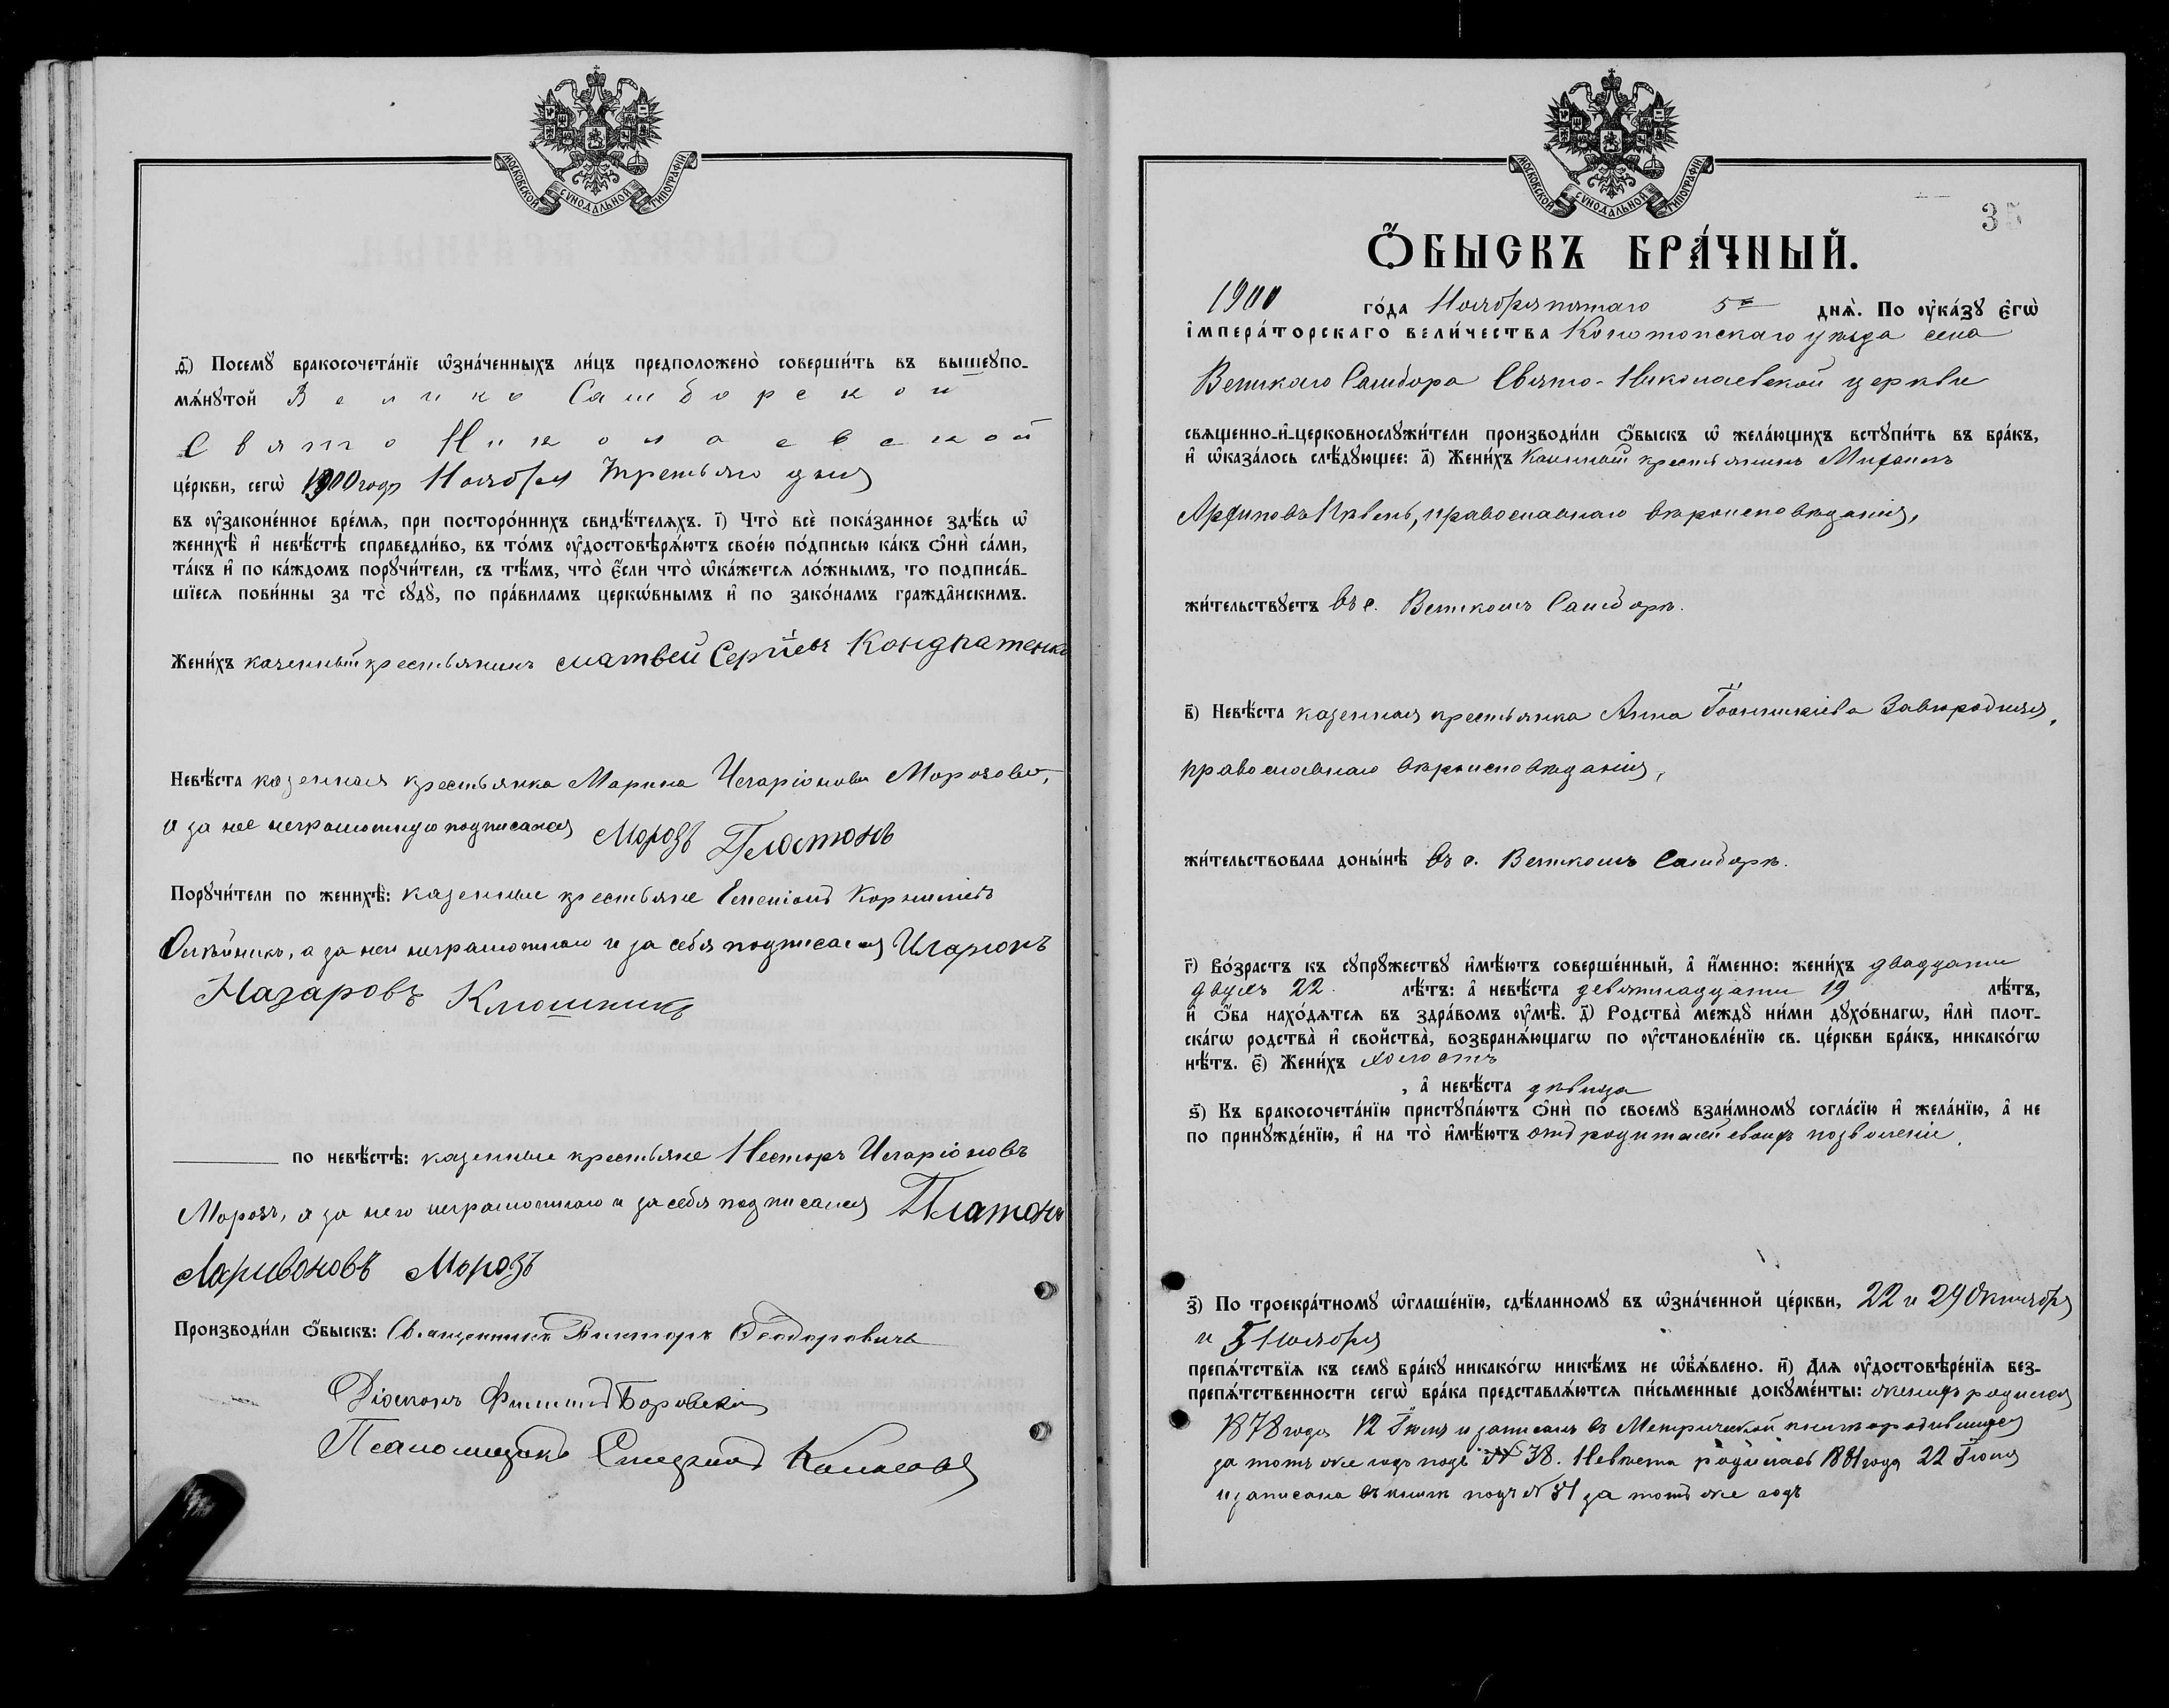 МОСКОВСКОЙ СѴНОДАЛЬНОЙ ТИПОГРАФІИ
ѳ҃) Посемꙋ̀ бракосочета́нїе ѡ҆зна́ченныхъ ли́цъ предположено̀ соверши́ть въ вышеꙋпо-
мѧ́нꙋтой Велико Самборской
Свято Николаевской
це́ркви, сегѡ̀ 1900 года Ноября третьяго дня
въ ᲂу҆законе́нное вре́мѧ, при посторо́ннихъ свидѣ́телѧхъ. і҃) Что̀ всѐ пока́занное здѣ́сь ѡ҆
женихѣ̀ и҆ невѣ́стѣ справедли́во, въ то́мъ ᲂу҆достовѣрѧ́ютъ своею по́дписью ка́къ ѻ҆нѝ са́ми,
та́къ и҆ по ка́ждомъ порꙋчи́тели, съ тѣ́мъ, что̀ є҆́сли что̀ ѡ҆ка́жетсѧ ло́жнымъ, то подписа́в-
шїесѧ пови́нны за то̀ сꙋдꙋ̀, по пра́виламъ церкѡ́внымъ и҆ по зако́намъ гражда̑нскимъ.
Жени́хъ казенный крестьянинъ Матвей Сергіевъ Кондратенко
Невѣ́ста казенная крестьянка Марина Иларіонова Морозова,
а за нее неграмотную подписался Морозъ Платонъ
Порꙋчи́тели по женихѣ̀: казенные крестьяне Корниліевъ
Олѣйникъ, а за неграмотнаго и за себя подписался Иларионъ
Назаровъ Клюшникъ
по невѣ́стѣ: казенные крестьяне Несторъ Иларіоновъ
Морозъ, а за него неграмотнаго и за себя подписался Платонъ
Ларивоновъ Морозъ
Производи́ли ѻ҆́быскъ: Священникъ Викторъ Ѳеодоровичъ
Діаконъ Филиппъ Боровскій
Псаломщикъ
МОСКОВСКОЙ СѴНОДАЛЬНОЙ ТИПОГРАФІИ
35
Ѻ҆́БЫСКЪ БРА́ЧНЫЙ.
1900 го́да Ноября пятаго 5го днѧ̀. По ᲂу҆ка́зꙋ є҆гѡ̀
і҆мпера́торскаго вели́чества Конотопскаго уѣзда села
Великаго Самбора Свято-Николаевской церкви
свѧщенно-и҆-церковнослꙋжи́тели производи́ли ѻ҆́быскъ ѡ҆ жела́ющихъ встꙋпи́ть въ бра́къ,
и҆ ѡ҆каза́лось слѣ́дꙋющее: а҃) Жени́хъ казенный крестьянинъ Михаилъ
Архиповъ Пѣвень, православнаго вѣроисповѣданія,
жи́тельствꙋетъ въ с. Великомъ Самборѣ.
в҃) Невѣ́ста казенная крестьянка Анна Іоанникіева Завгородняя,
православнаго вѣроисповѣданія,
жи́тельствовала доны́нѣ въ с. Великомъ Самборѣ.
г҃) Во́зрастъ къ сꙋпрꙋ́жествꙋ и҆мѣ́ютъ соверше́нный, а҆ и҆́менно: жени́хъ двадцати
двухъ 22. лѣ́тъ: а҆ невѣ́ста девятнадцати 19 лѣ́тъ,
и҆ ѻ҆́ба нахо́дѧтсѧ въ здра́вомъ ᲂу҆мѣ̀. д҃) Родства̀ междꙋ̀ ни́ми дꙋхо́внагѡ, и҆лѝ плот-
ска́гѡ родства̀ и҆ свойства̀, возбранѧ́ющагѡ по ᲂу҆становле́нїю св. це́ркви бра́къ, никако́гѡ
нѣ́тъ. є҃) Жени́хъ холостъ
, а҆ невѣ́ста дѣвица
ѕ҃) Къ бракосочета́нїю пристꙋпа́ютъ ѻ҆нѝ по своемꙋ̀ взаи́мномꙋ согла́сїю и҆ жела́нїю, а҆ не
по принꙋжде́нїю, и҆ на то̀ и҆мѣ́ютъ отъ родителей своихъ позволеніе.
з҃) По троекра́тномꙋ ѡ҆глаше́нїю, сдѣ́ланномꙋ въ ѡ҆зна́ченной це́ркви, 22 и 29 Октября
и 5 Ноября
препѧ́тствїѧ къ семꙋ̀ бра́кꙋ никако́гѡ никѣ́мъ не ѡ҆б̾ѧ́влено. и҃) Длѧ ᲂу҆достовѣре́нїѧ без-
препѧ́тственности сегѡ̀ бра́ка представлѧ́ютсѧ пи́сьменные докꙋме́нты: женихъ родился
1878 года 12 Іюля и записанъ въ Метрической книгѣ о родившихся
за тотъ же годъ подъ № 38. Невѣста родилась 1881 года 22 Іюля
и записана въ книгѣ подъ № 31 за тотъ же годъ